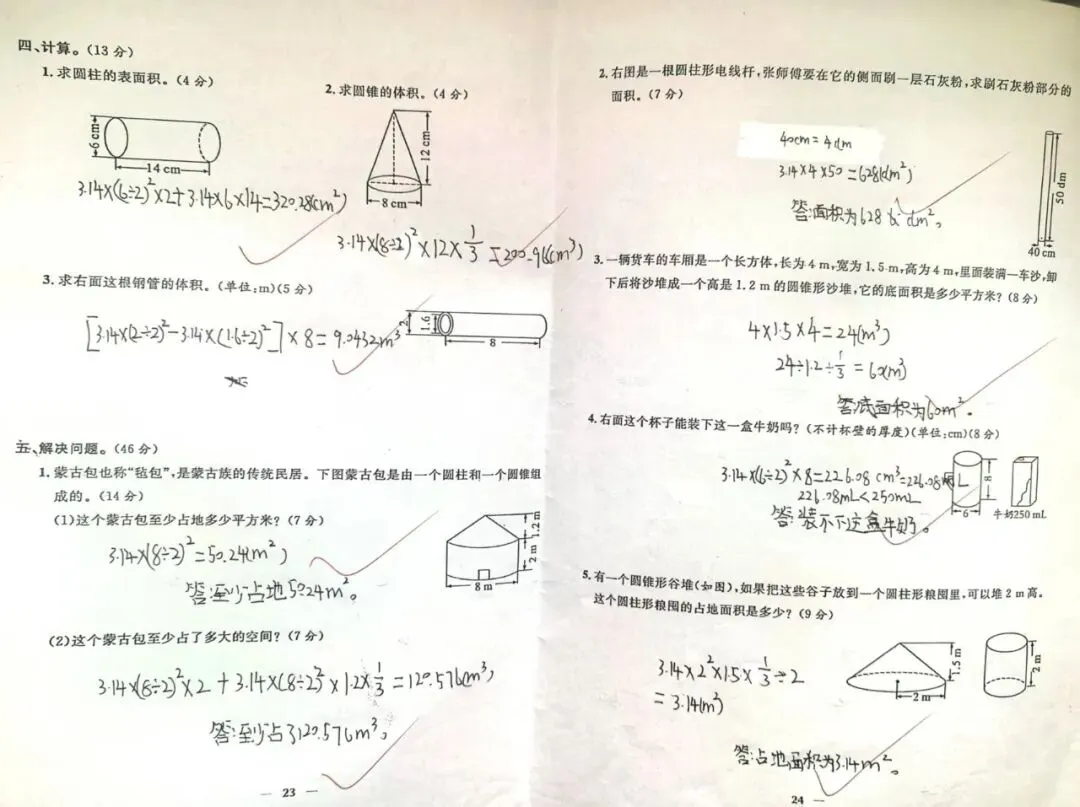 四、计算。(13分)
1.求圆柱的表面积。(4分)
6 cm
14 cm
3.14×(6÷2)²×2+3.14×6×14=320.28(cm²)
2.求圆锥的体积。(4分)
12 cm
8 cm
3.14×(8÷2)²×12×1/3=200.96(cm³)
3.求右面这根钢管的体积。(单位:m)(5分)
[3.14×(2÷2)²-3.14×(1.6÷2)²]×8=9.0432m³
2
1.6
8
五、解决问题。(46分)
1.蒙古包也称“毡包”,是蒙古族的传统民居。下图蒙古包是由一个圆柱和一个圆锥组
成的。(14分)
(1)这个蒙古包至少占地多少平方米?(7分)
3.14×(8÷2)²=50.24(m²)
答:至少占地50.24m²。
1.2 m
2 m
8 m
(2)这个蒙古包至少占了多大的空间?(7分)
3.14×(8÷2)²×2+3.14×(8÷2)²×1.2×1/3=120.576(m³)
答:至少占了120.576m³。
— 23 —
2.右图是一根圆柱形电线杆,张师傅要在它的侧面刷一层石灰粉,求刷石灰粉部分的
面积。(7分)
40cm=4dm
3.14×4×50=628(dm²)
答:面积为628dm²。
50 dm
40 cm
3.一辆货车的车厢是一个长方体,长为4 m,宽为1.5 m,高为4 m,里面装满一车沙,卸
下后将沙堆成一个高是1.2 m的圆锥形沙堆,它的底面积是多少平方米?(8分)
4×1.5×4=24(m³)
24÷1.2÷1/3=60(m²)
答:底面积为60m²。
4.右面这个杯子能装下这一盒牛奶吗?(不计杯壁的厚度)(单位:cm)(8分)
3.14×(6÷2)²×8=226.08cm³=226.08mL
226.08mL<250mL
答:装不下这盒牛奶。
8
6
牛奶250 mL
5.有一个圆锥形谷堆(如图),如果把这些谷子放到一个圆柱形粮囤里,可以堆2 m高。
这个圆柱形粮囤的占地面积是多少?(9分)
3.14×2²×1.5×1/3÷2
=3.14(m²)
1.5 m
2 m
2 m
答:占地面积为3.14m²。
— 24 —